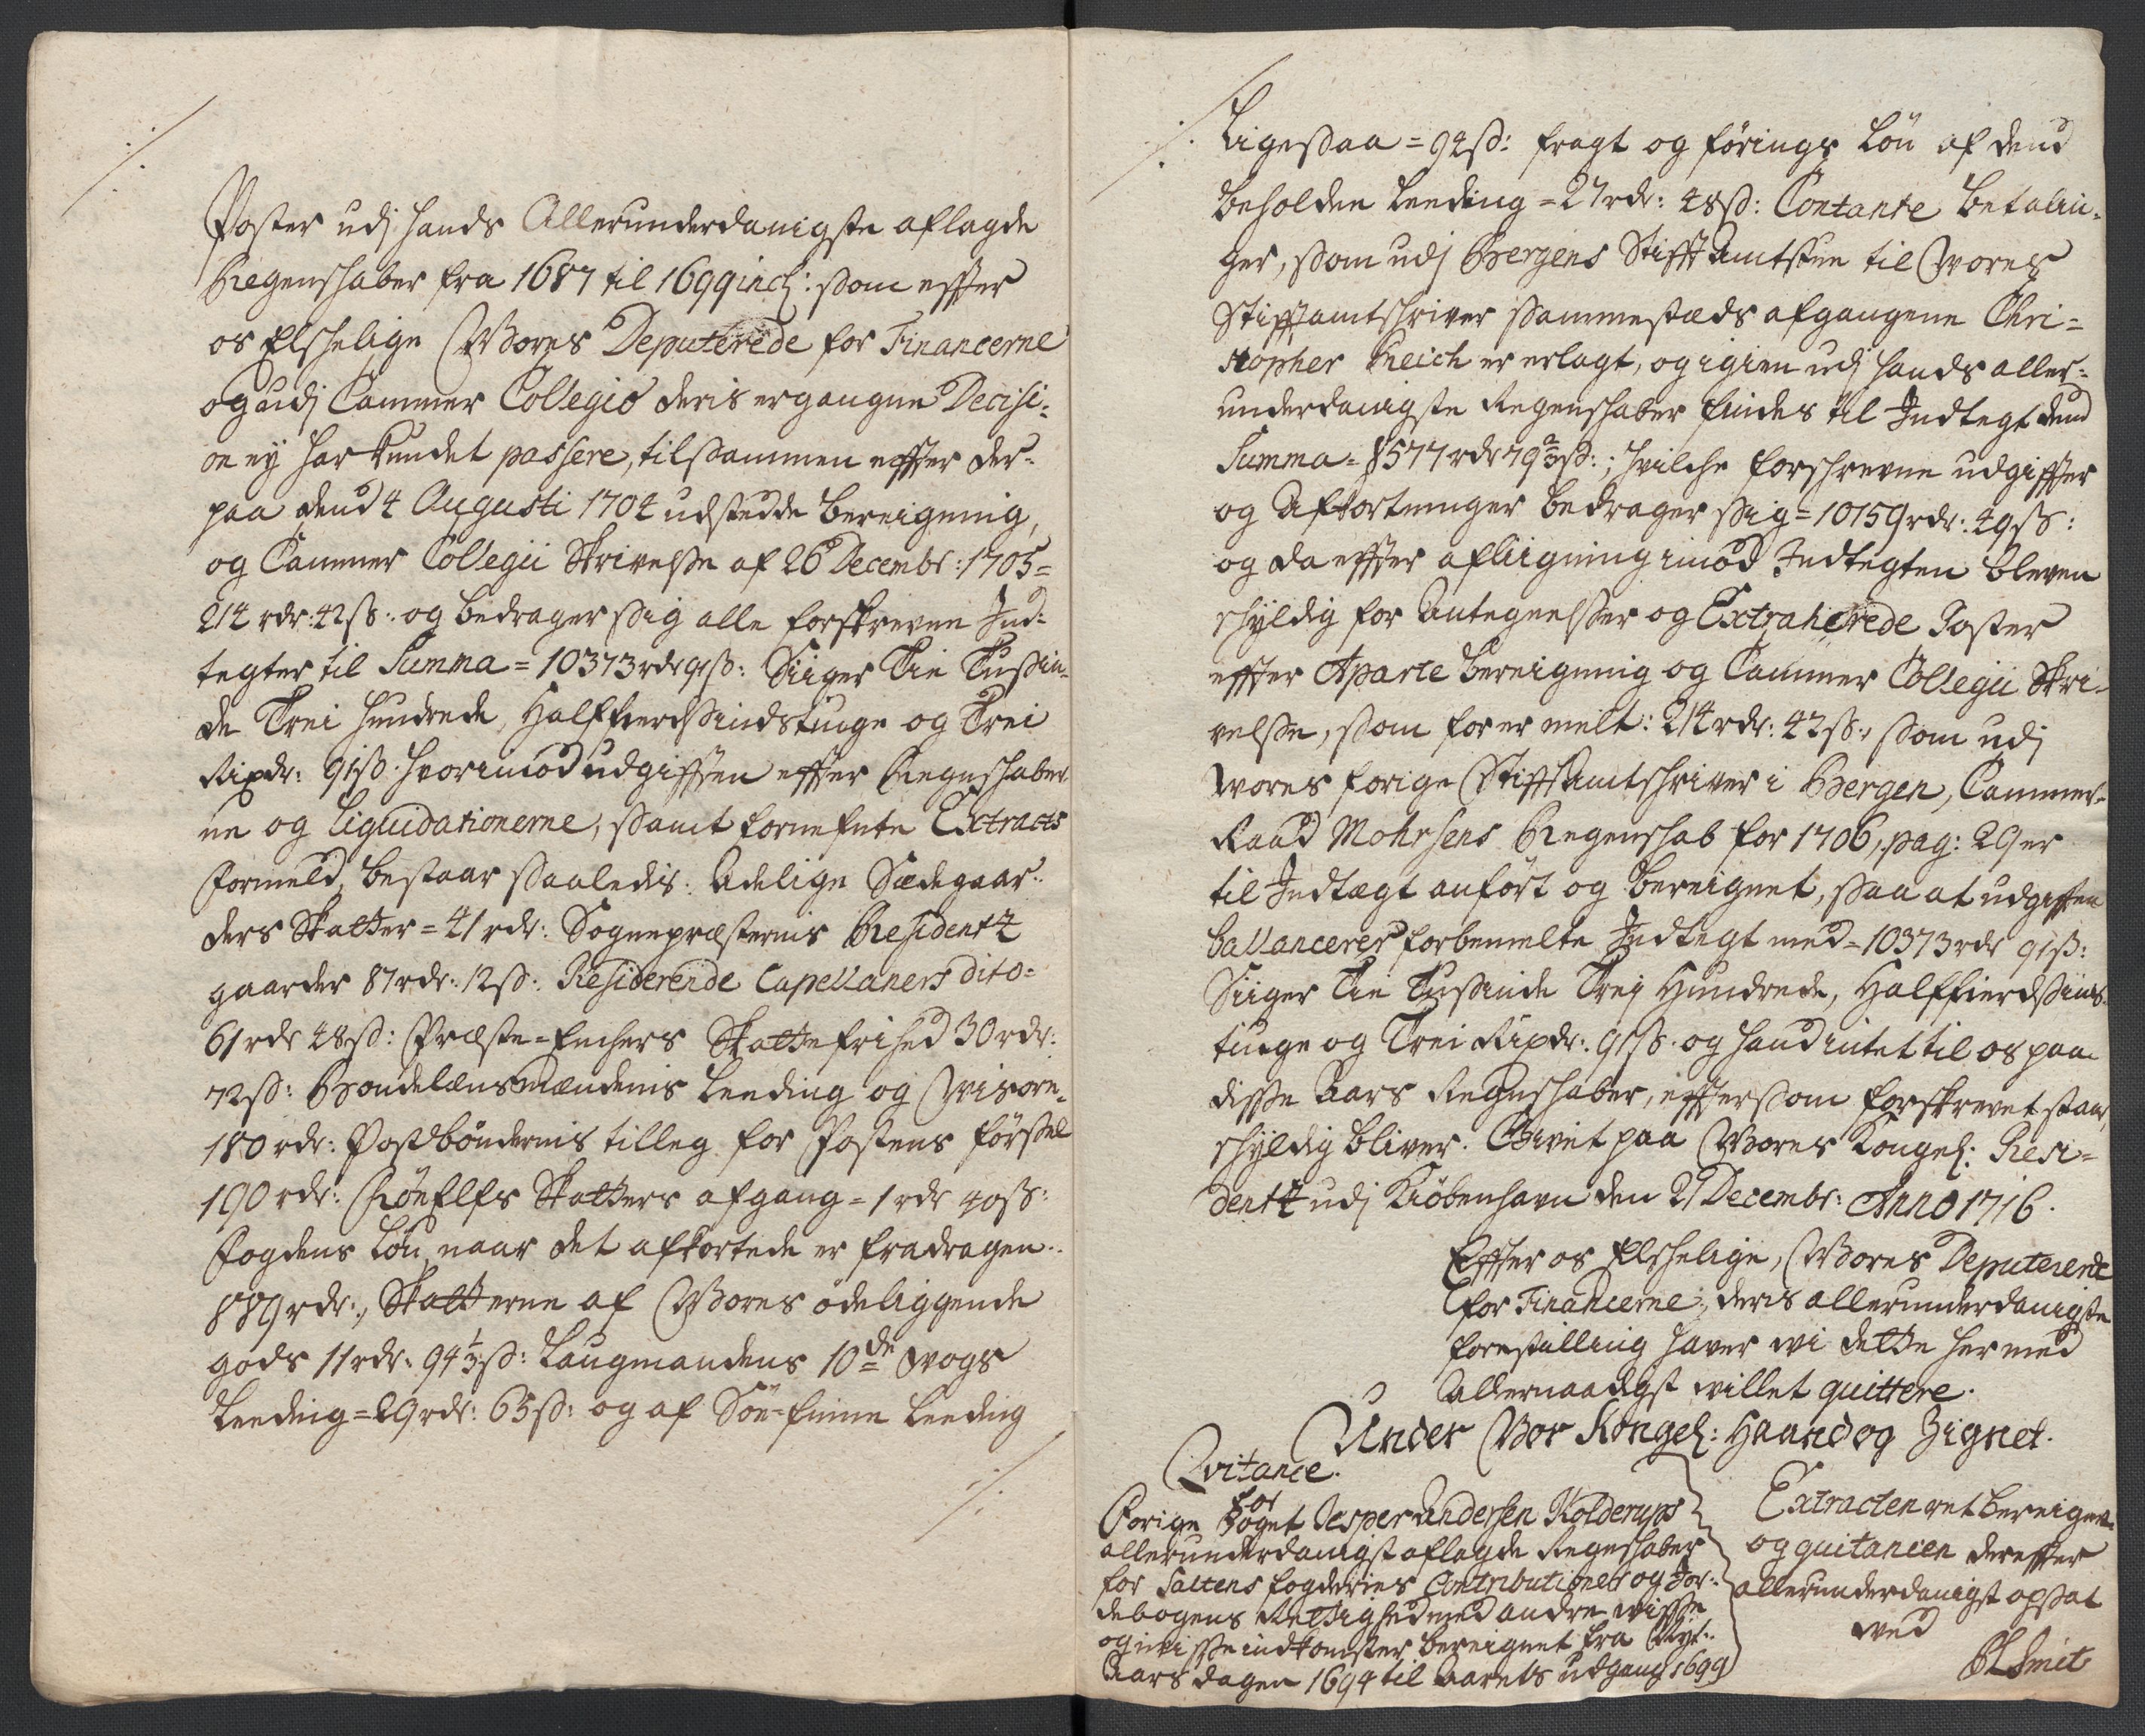 Poster udj hands Allerunderdanigste aflagde
Regenschaber fra 1687 til 1699 incl: som effter
os Elschelige Wores Deputerede for Financerne
og udj Cammer Collegio deris ergangne Decisi-
on ey har kundet passere, tilsammen effter der-
paa dend 4 Augusti 1704 udstedde bereigning,
og Cammer Collegii Skrivelse af 26 Decembr: 1705=
214 rdr: 42 ß: og bedrager sig alle forskrevne Ind-
tegter til Summa = 10373 rdr 91 ß: Siiger Tie Tusin-
de Trei Hundrede, Halffierdsindstiuge og Trei
Rixdr: 91 ß. hvorimod udgifften effter Regnschaber-
ne og Liquidationerne, samt fornefnte Extracts
formeld, bestaar saaledis: Adelige Sædegaar-
ders Skatter = 41 rdr: Sognepræsternis Residentz
gaarder 87 rdr: 12 ß: Residerende Capellaners dito=
61 rdr 48 ß: Præste-Enchers Skattefrihed 30 rdr:
72 ß: Bondelænsmændenis Leeding og Wisøre-
180 rdr: Postbøndernis tilleg for Postens førsel
190 rdr: Skatters afgang = 1 rdr 40 ß:
Fogdens Løn, naar det afkortede er fradragen-
889 rdr:, Skatterne af Wores ødeliggende
gods 11 rdr: 94 1/3 ß: Laugmandens 10de wogs
Leeding = 29 rdr: 63 ß: og af Søe-finne Leeding
ligesaa = 92 ß: fragt og førings Løn af dend
beholden Leeding = 27 rdr: 48 ß: Contante betalin-
ger, som udj Bergens Stifft Amtstue til Wores
Stifftamtschriver sammestæds afgangene Chri-
stopher Reich er erlagt, og igien udj hands aller-
underdanigste Regenschaber findes til Indtegt dend
Summa = 8577 rdr 79 2/3 ß:; hvilche forschrevne udgiffter
og Afkortninger bedrager sig = 10159 rdr: 49 ß:
og da effter afliigning imod Indtegten bleven
schyldig for Antegnelser og Extraherede Poster
effter Aparte bereigning og Cammer Collegii Skri-
velse, som før er melt: 214 rdr: 42 ß:, som udj
wores forige Stifft Amtschriver i Bergen, Cammer-
Raad Mohrsens Regenschab for 1706, pag: 29 er
til Indtægt anført og bereignet, saa at udgifften
ballancerer forbemelte Indtegt med = 10373 rdr 91 ß:
Siiger Tie Tusinde Trej Hundrede, Halffierdsinds-
tiuge og Trei Rixdr: 91 ß. og hand intet til os paa
disse Aars Regnschaber, efftersom forskrevet staar,
schyldig bliver. Givet paa Wores Kongel: Resi-
dentz udj Kiøbenhavn den 21 Decembr: Anno 1716.
Effter os Elschelige, Wores Deputerede
for Financerne, deris allerunderdanigste
forestilling haver wi dette hermed
Allernaadigst willet quittere.
Under Vor Kongel: Haand og Zignet.
Qvitance.
for
Forige Foget Jesper Andersen Kolderups
allerunderdanigst aflagde Regnschaber
for Saltens fogderies Contributioner og Jor-
debogens Rettighed med andre wisse
og uwisse indkomster, bereignet fra Nyt-
Aars dagen 1694 til Aarets udgang 1699
Extracten ret bereignet
og quitancen dereffter
allerunderdanigst opsat
ved
Smit